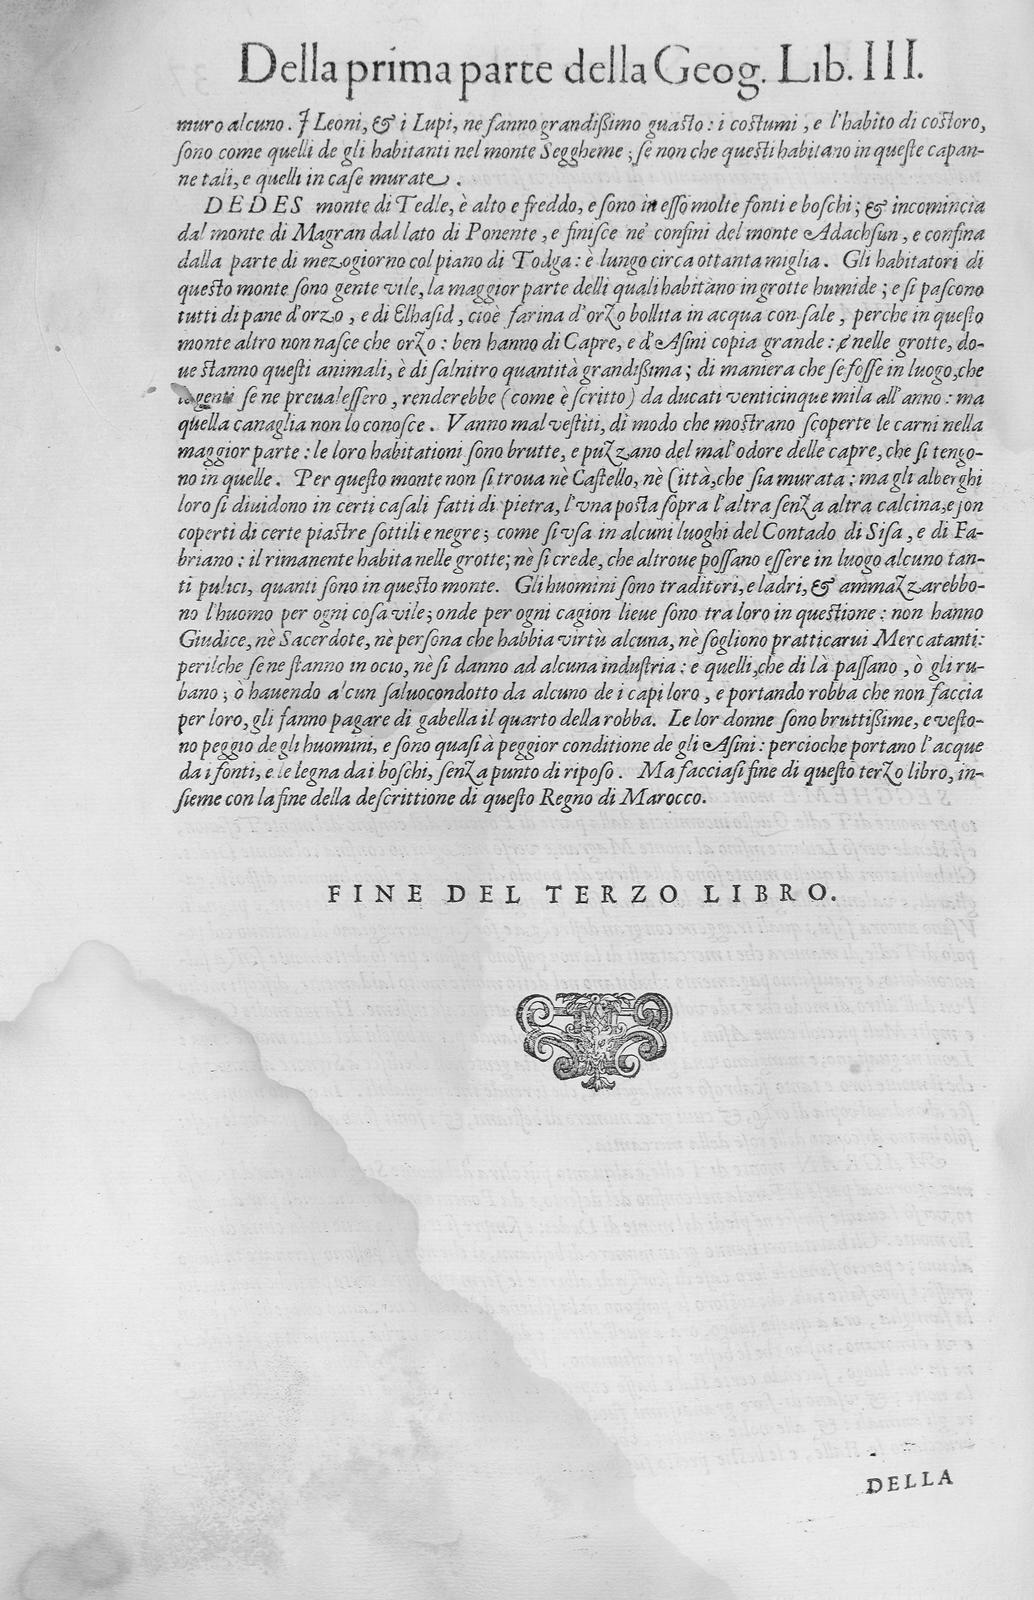 Della prima parte della Geog. Lib. III.
muro alcuno. I Leoni, & i Lupi, ne fanno grandißimo guasto: i costumi, e l'habito di costoro,
sono come quelli de gli habitanti nel monte Seggheme; se non che questi habitano in queste capan-
ne tali, e quelli in case murate.
DEDES monte di Tedle, è alto e freddo, e sono in esso molte fonti e boschi; & incomincia
dal monte di Magran dal lato di Ponente, e finisce ne' confini del monte Adachsun, e confina
dalla parte di mezogiorno col piano di Todga: è lungo circa ottanta miglia. Gli habitatori di
questo monte sono gente vile, la maggior parte delli quali habitano in grotte humide; e si pascono
tutti di pane d'orzo, e di Elhasid, cioè farina d'orzo bollita in acqua con sale, perche in questo
monte altro non nasce che orzo: ben hanno di Capre, e d'Asini copia grande: e nelle grotte, do-
ue stanno questi animali, è di salnitro quantità grandißima; di maniera che se fosse in luogo, che
le genti se ne preualessero, renderebbe (come è scritto) da ducati venticinque mila all'anno: ma
quella canaglia non lo conosce. Vanno mal vestiti, di modo che mostrano scoperte le carni nella
maggior parte: le loro habitationi sono brutte, e puzzano del mal'odore delle capre, che si tengo-
no in quelle. Per questo monte non si troua nè Castello, nè Città, che sia murata: ma gli alberghi
loro si diuidono in certi casali fatti di pietra, l'vna posta sopra l'altra senza altra calcina, e son
coperti di certe piastre sottili e negre; come si vsa in alcuni luoghi del Contado di Sisa, e di Fa-
briano: il rimanente habita nelle grotte; nè si crede, che altroue possano essere in luogo alcuno tan-
ti pulici, quanti sono in questo monte. Gli huomini sono traditori, e ladri, & ammazzarebbo-
no l'huomo per ogni cosa vile; onde per ogni cagion lieue sono tra loro in questione: non hanno
Giudice, nè Sacerdote, nè persona che habbia virtù alcuna, nè sogliono pratticarui Mercatanti:
perilche se ne stanno in ocio, nè si danno ad alcuna industria: e quelli, che di là passano, ò gli ru-
bano; ò hauendo alcun saluocondotto da alcuno de i capi loro, e portando robba che non faccia
per loro, gli fanno pagare di gabella il quarto della robba. Le lor donne sono bruttißime, e vesto-
no peggio de gli huomini, e sono quasi à peggior conditione de gli Asini: percioche portano l'acque
da i fonti, e le legna da i boschi, senza punto di riposo. Ma facciasi fine di questo terzo libro, in-
sieme con la fine della descrittione di questo Regno di Marocco.
FINE DEL TERZO LIBRO.
DELLA